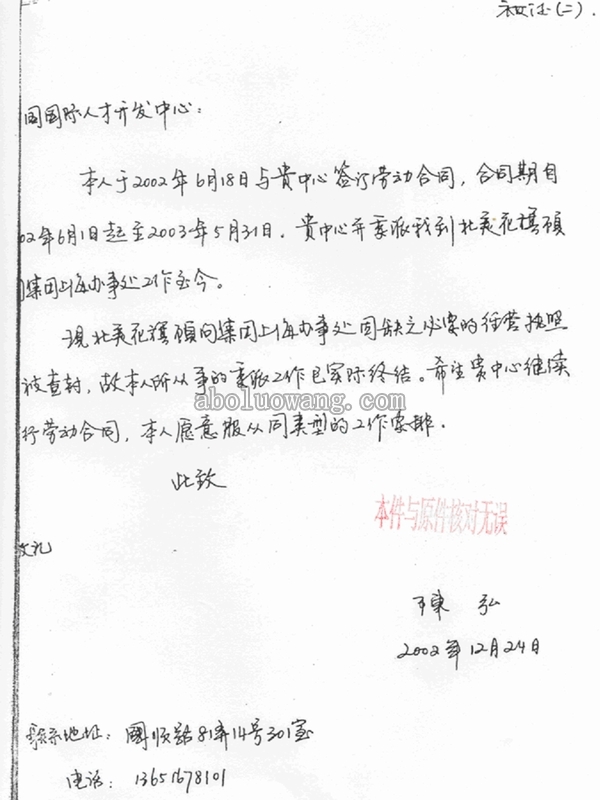 补证(二).
国国际人才开发中心:
本人于2002年6月18日与贵中心签订劳动合同, 合同期自
02年6月1日起至2003年5月31日. 贵中心并委派我到北美花旗顾
问集团上海办事处工作至今。
现北美花旗顾问集团上海办事处因缺乏必要的经营执照
被查封, 故本人所从事的委派工作已实际终结。希望贵中心继续
行劳动合同, 本人愿意服从同类型的工作安排.
aboluowang.com
此致
本件与原件核对无误
敬礼
陈 弘
2002年12月24日
联系地址: 國顺路81弄14号301室
电话: 13651678101